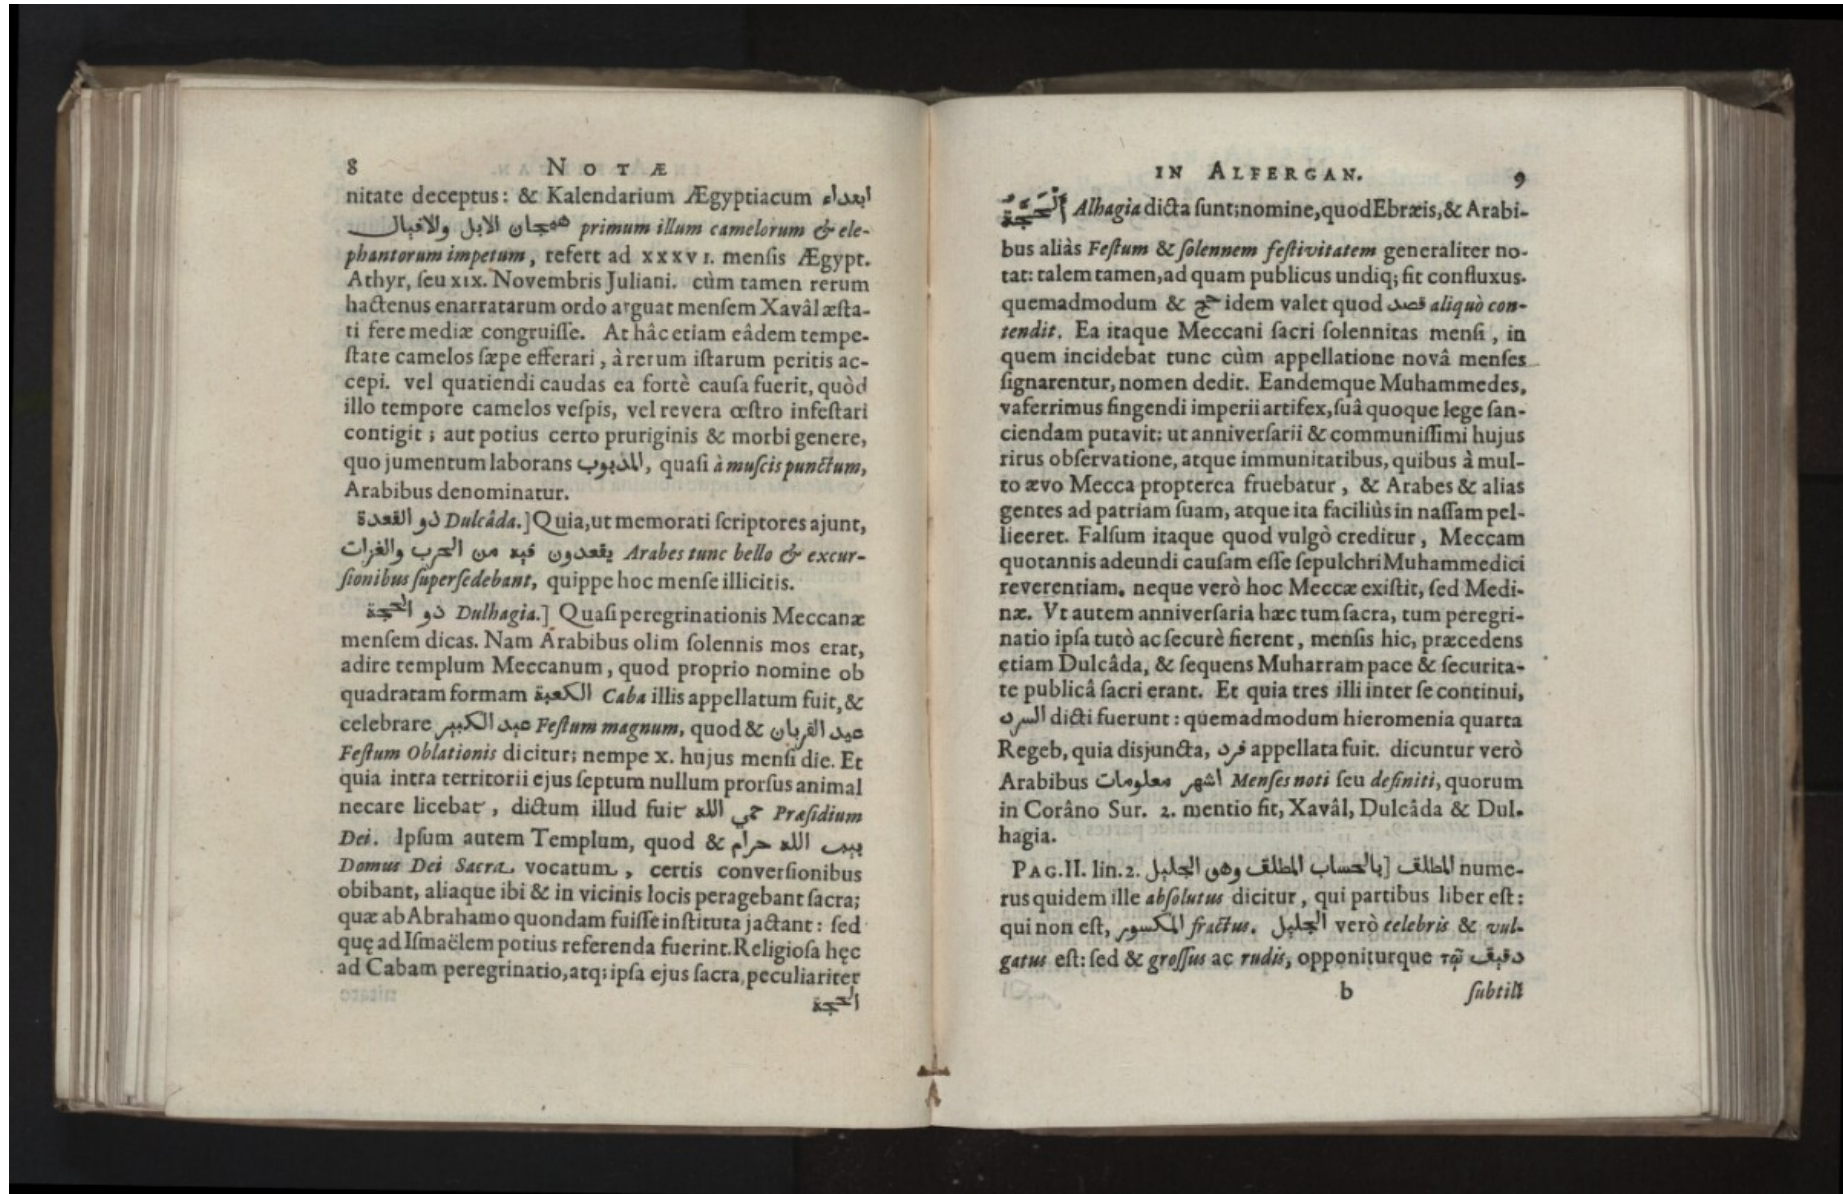 8 NOTÆ
nitate deceptus: & Kalendarium Ægyptiacum ابعداء
هيجان الابل والافيال primum illum camelorum & ele-
phantorum impetum, refert ad xxxvI. mensis Ægypt.
Athyr, seu xix. Novembris Juliani. cùm tamen rerum
hactenus enarratarum ordo arguat mensem Xavâl æsta-
ti fere mediæ congruisse. At hâc etiam eâdem tempe-
state camelos sæpe efferari, à rerum istarum peritis ac-
cepi. vel quatiendi caudas ea fortè causa fuerit, quòd
illo tempore camelos vespis, vel revera œstro infestari
contigit; aut potius certo pruriginis & morbi genere,
quo jumentum laborans المذبوب, quasi à muscis punctum,
Arabibus denominatur.
ذو القعدة Dulcâda.] Quia, ut memorati scriptores ajunt,
يقعدون فيه من الحرب والغزات Arabes tunc bello & excur-
sionibus supersedebant, quippe hoc mense illicitis.
ذو الحجة Dulhagia.] Quasi peregrinationis Meccanæ
mensem dicas. Nam Arabibus olim solennis mos erat,
adire templum Meccanum, quod proprio nomine ob
quadratam formam الكعبة Caba illis appellatum fuit, &
celebrare عيد الكبير Festum magnum, quod & عيد القربان
Festum Oblationis dicitur; nempe x. hujus mensi die. Et
quia intra territorii ejus septum nullum prorsus animal
necare licebat, dictum illud fuit حمي الله Præsidium
Dei. Ipsum autem Templum, quod & بيت الله حرام
Domus Dei Sacra vocatum, certis conversionibus
obibant, aliaque ibi & in vicinis locis peragebant sacra;
quæ ab Abrahamo quondam fuisse instituta jactant: sed
quę ad Ismaëlem potius referenda fuerint. Religiosa hęc
ad Cabam peregrinatio, atq; ipsa ejus sacra, peculiariter
الحجة
IN ALFERGAN. 9
الحجة Alhagia dicta sunt: nomine, quod Ebræis, & Arabi-
bus aliàs Festum & solennem festivitatem generaliter no-
tat: talem tamen, ad quam publicus undiq; fit confluxus.
quemadmodum & حج idem valet quod قصد aliquò con-
tendit. Ea itaque Meccani sacri solennitas mensi, in
quem incidebat tunc cùm appellatione novâ menses
signarentur, nomen dedit. Eandemque Muhammedes,
vaferrimus fingendi imperii artifex, suâ quoque lege san-
ciendam putavit: ut anniversarii & communissimi hujus
ritus observatione, atque immunitatibus, quibus à mul-
to ævo Mecca propterea fruebatur, & Arabes & alias
gentes ad patriam suam, atque ita faciliùs in nassam pel-
liceret. Falsum itaque quod vulgò creditur, Meccam
quotannis adeundi causam esse sepulchri Muhammedici
reverentiam. neque verò hoc Meccæ existit, sed Medi-
næ. Vt autem anniversaria hæc tum sacra, tum peregri-
natio ipsa tutò ac securè fierent, mensis hic, præcedens
etiam Dulcâda, & sequens Muharram pace & securita-
te publicâ sacri erant. Et quia tres illi inter se continui,
السرد dicti fuerunt: quemadmodum hieromenia quarta
Regeb, quia disjuncta, فرد appellata fuit. dicuntur verò
Arabibus اشهر معلومات Menses noti seu definiti, quorum
in Corâno Sur. 2. mentio fit, Xavâl, Dulcâda & Dul-
hagia.
PAG. II. lin. 2. بالحساب المطلق وهى الجليل] المطلق nume-
rus quidem ille absolutus dicitur, qui partibus liber est:
qui non est, المكسور fractus. الجليل verò celebris & vul-
gatus est: sed & grossus ac rudis, opponiturque τῷ دقيق
b subtili